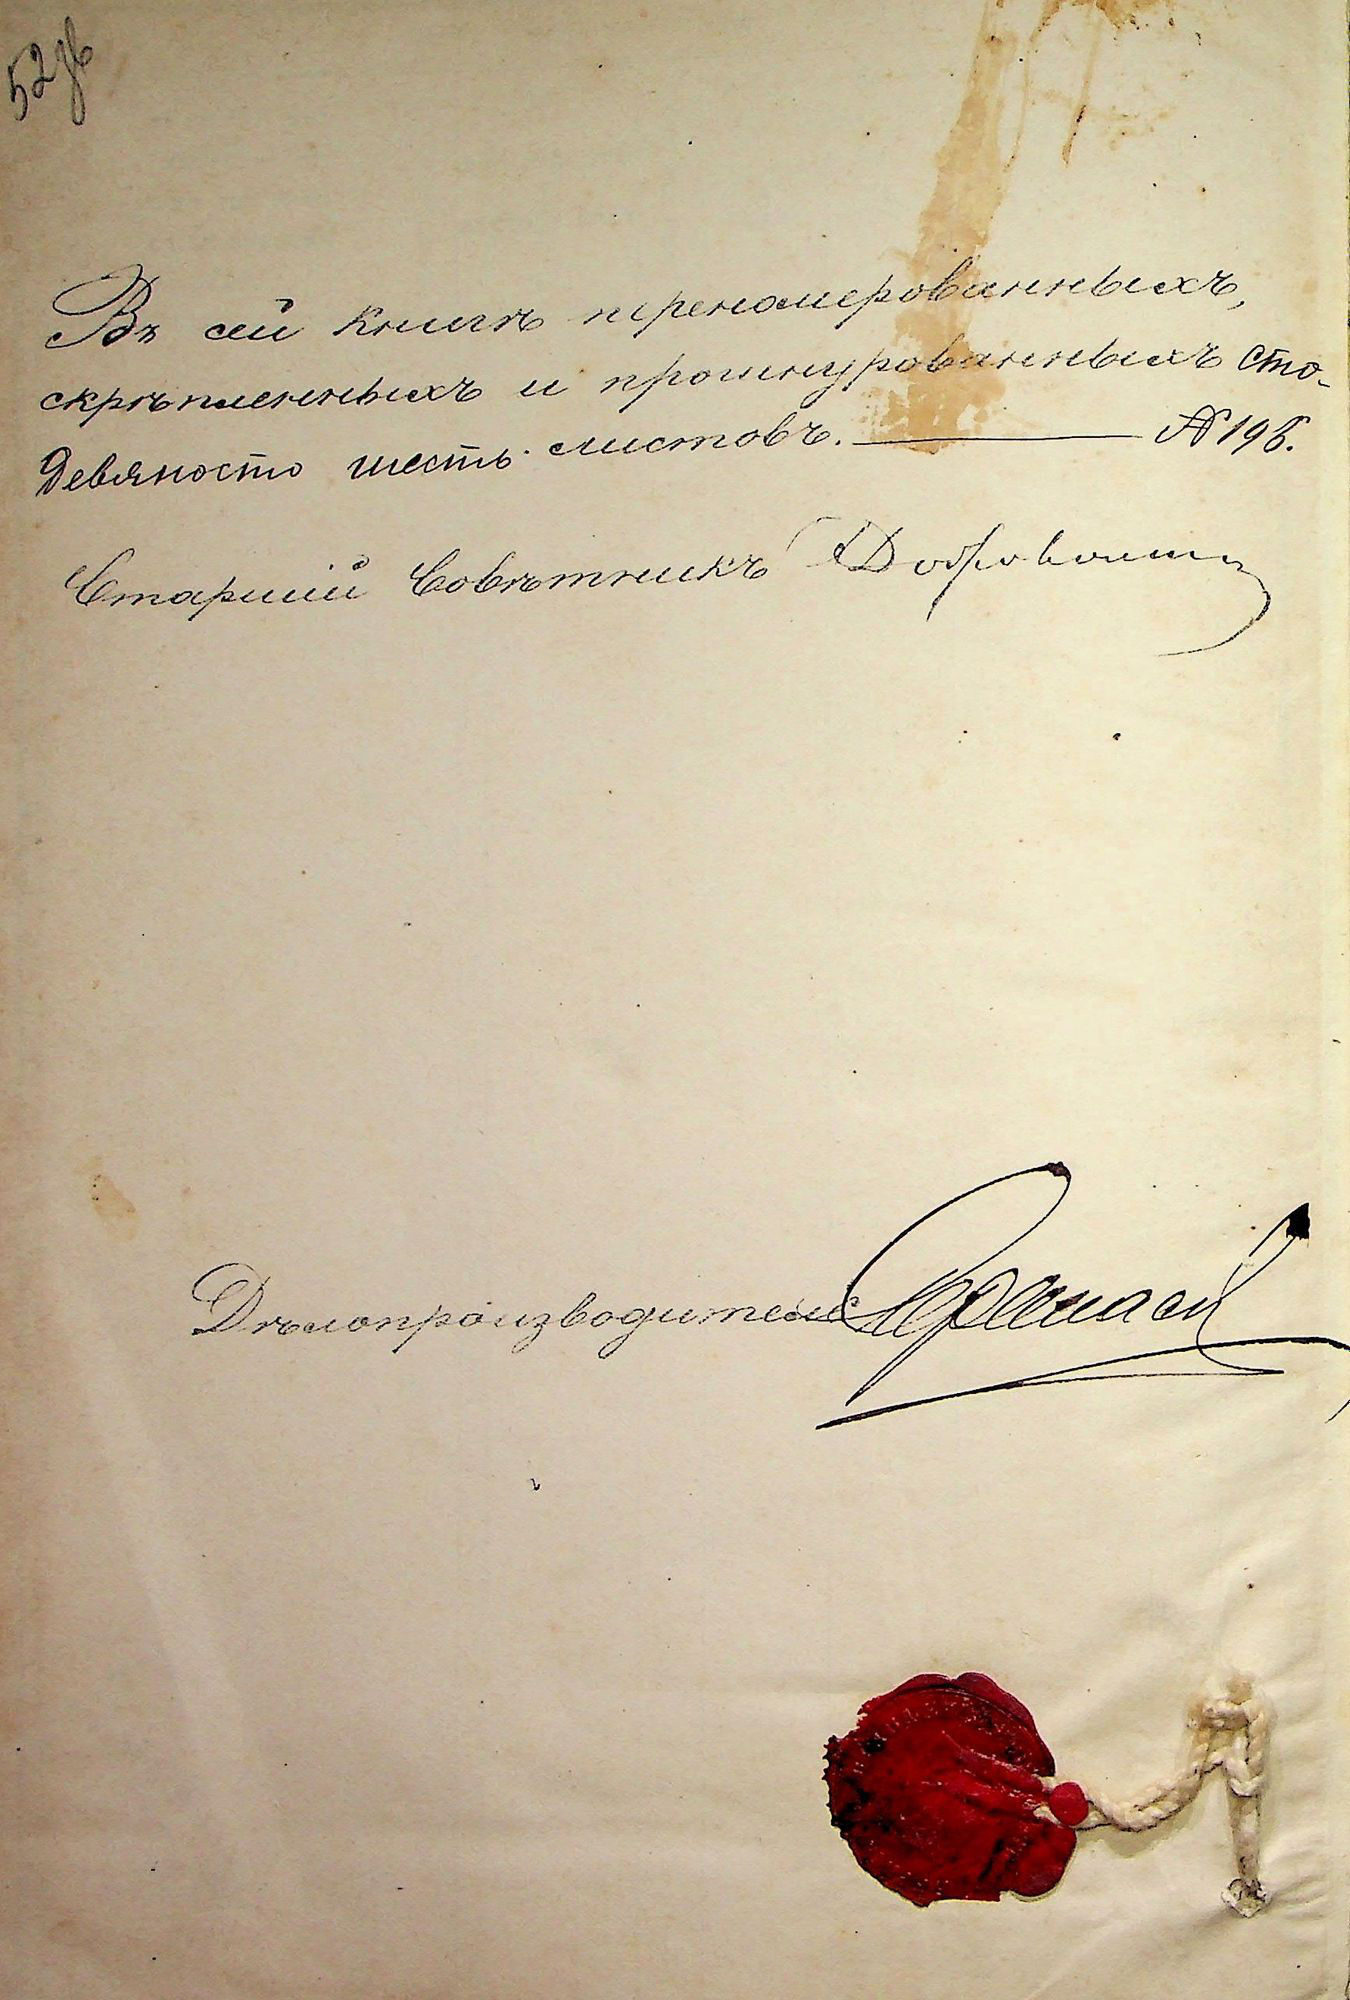 52
Въ сей книгѣ пренумерованныхъ,
скрѣпленныхъ и прошнурованныхъ сто-
девяносто шесть листовъ. № 196.
Старшій Совѣтникъ
Дѣлопроизводитель